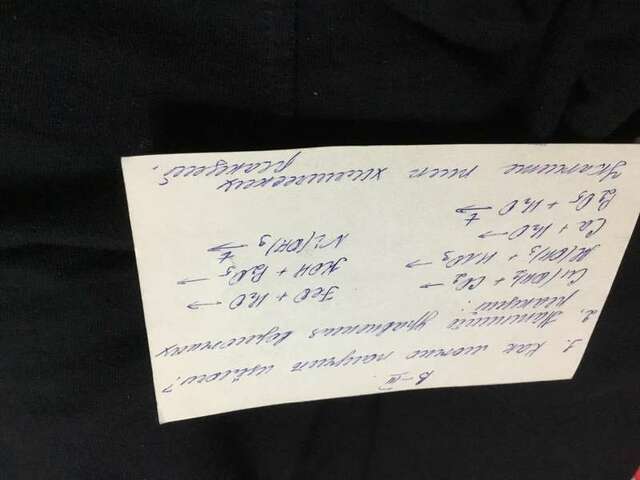 В-III.
1. Как можно получить щёлочи?
2. Напишите уравнения возможных
реакций:
Cu(OH)2 + CO2 →
Al(OH)3 + HNO3 →
Ca + H2O →
P2O5 + H2O t→
FeO + H2O →
KOH + P2O5 →
Ni(OH)3 t→
Укажите тип химических
реакций.